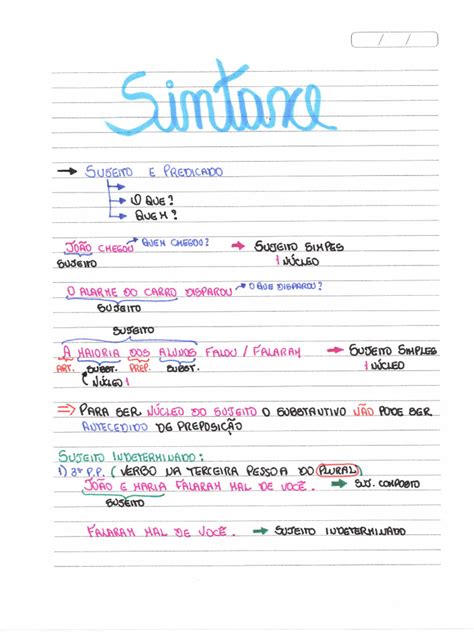 / /
Sintaxe
→ SUJEITO E PREDICADO
→ O QUE?
→ QUEM?
JOÃO CHEGOU → QUEM CHEGOU? → SUJEITO SIMPES
SUJEITO 1 NÚCLEO
O ALARME DO CARRO DISPAROU → O QUE DISPAROU?
SUJEITO
SUJEITO
A MAIORIA DOS ALUNOS FALOU / FALARAM → SUJEITO SIMPLES
ART. SUBST. PREP. SUBST. 1 NÚCLEO
NÚCLEO 1
⇒ PARA SER NÚCLEO DO SUJEITO O SUBSTANTIVO NÃO PODE SER
ANTECEDIDO DE PREPOSIÇÃO
SUJEITO INDETERMINADO:
1) 3ª P.P. (VERBO NA TERCEIRA PESSOA DO PLURAL)
JOÃO E MARIA FALARAM MAL DE VOCÊ. → SUJ. COMPOSTO
SUJEITO
FALARAM MAL DE VOCÊ. → SUJEITO INDETERMINADO